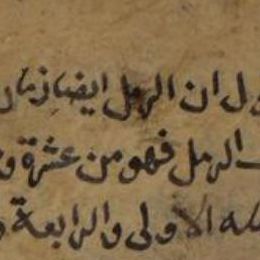 ول ان الرمل ايضا زمان
الرمل فهو من عشرة و
الاولى والرابعة